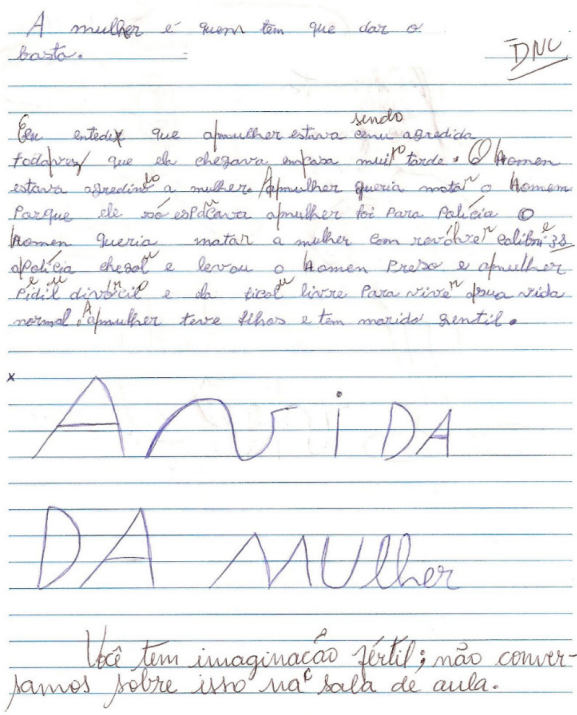 A mulher é quem tem que dar o
basta.
DNC
sendo
Eu entedir que apmulher estava agredida
todapvez que ela chegava empasa muito tarde. O Homen
estava agredindo a mulher. Apmulher queria matar o Homem
Parque ele só espacava apmulher foi Para Polícia O
homen queria matar a mulher com revolver calibre 38
apolícia chegol e levou o Homen Preso e apmulher
Pidil divorcil e ela ficol livre Para viver apsua vida
normal. Apmulher teve filhos e tem marido gentil.
x
A viDA
DA MUlher
Você tem imaginação fértil; não conver-
samos sobre isso na sala de aula.